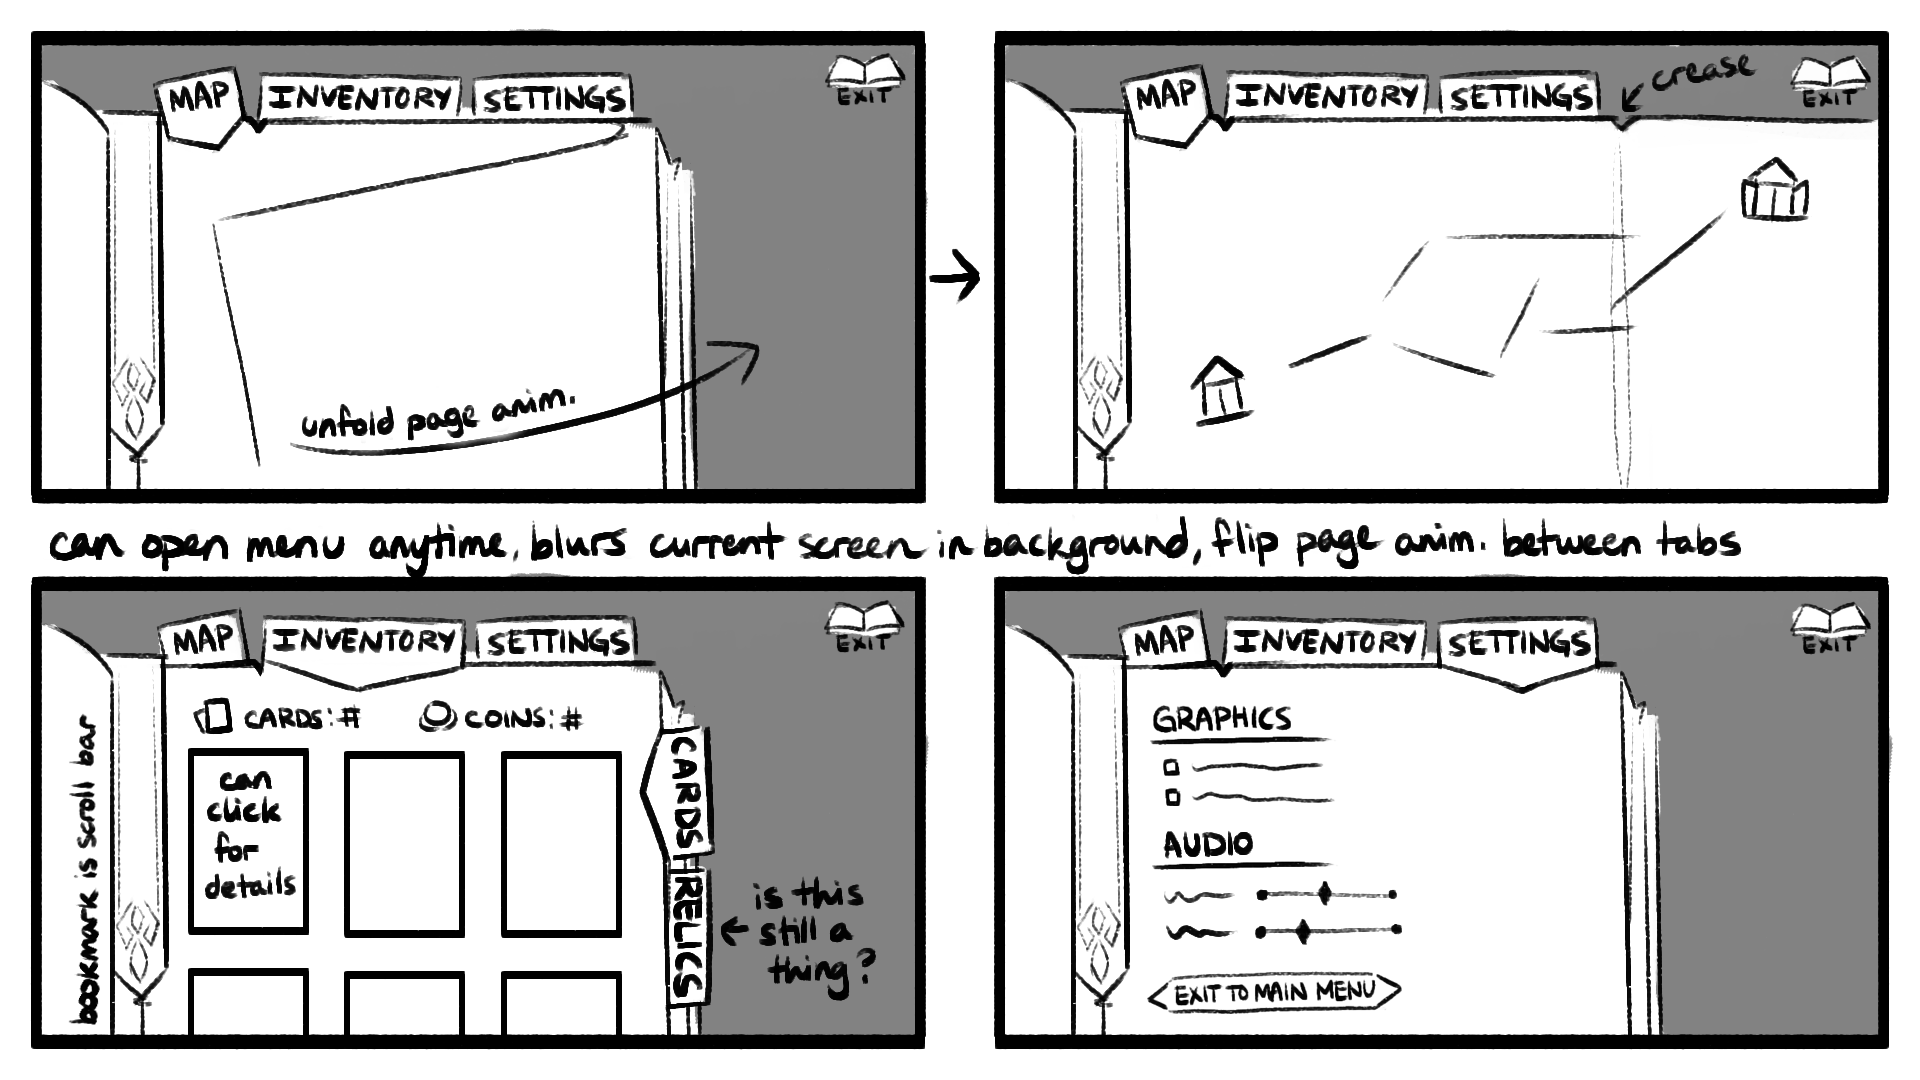 MAP INVENTORY SETTINGS
EXIT
unfold page anim.
MAP INVENTORY SETTINGS
crease
EXIT
can open menu anytime, blurs current screen in background, flip page anim. between tabs
MAP INVENTORY SETTINGS
EXIT
bookmark is scroll bar
CARDS: # COINS: #
can
click
for
details
CARDS
RELICS
is this
still a
thing?
MAP INVENTORY SETTINGS
EXIT
GRAPHICS
AUDIO
EXIT TO MAIN MENU